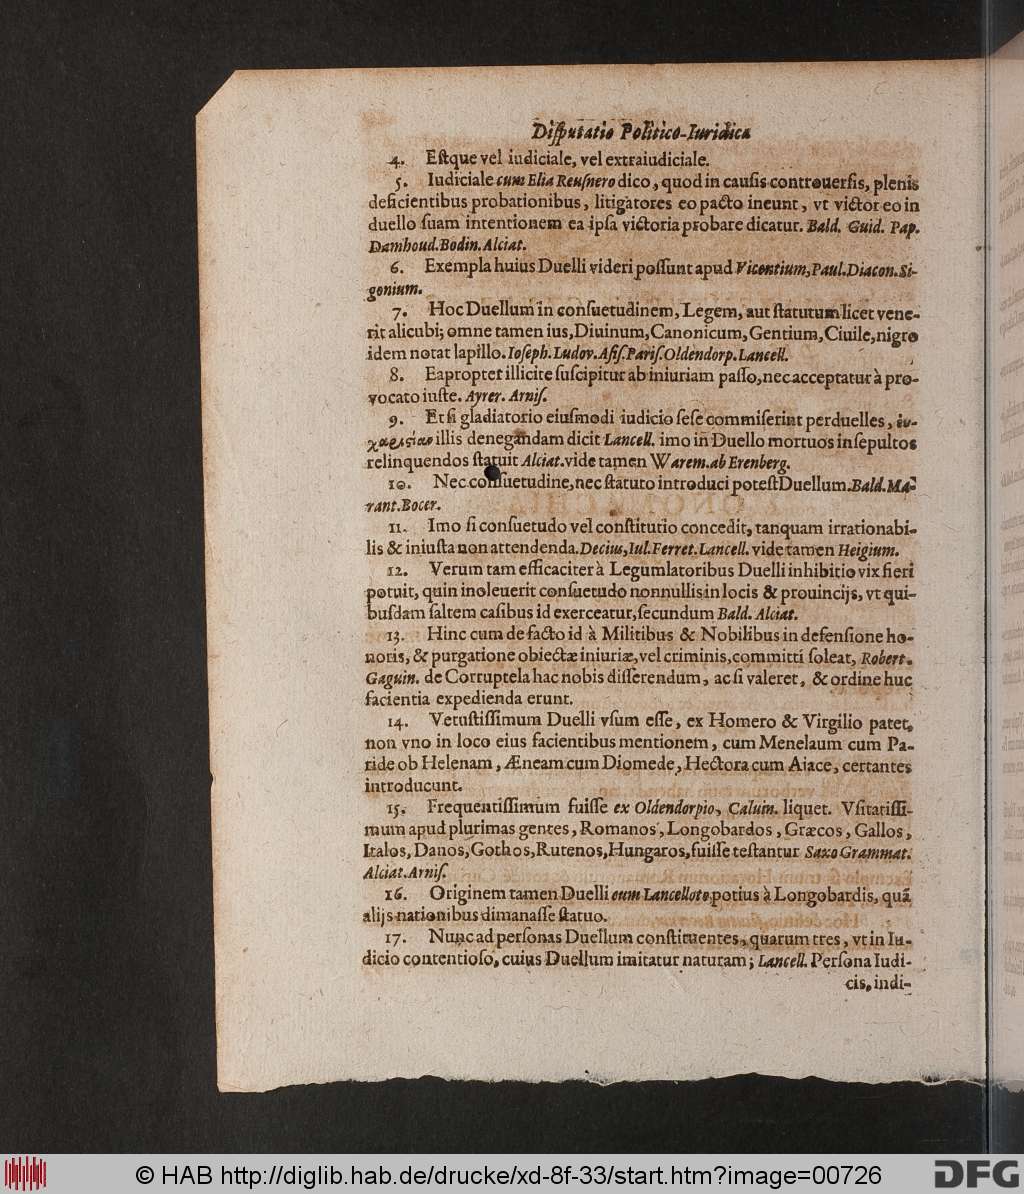 Disputatio Politico-Iuridica
4. Estque vel iudiciale, vel extraiudiciale.
5. Iudiciale cum Elia Reusnero dico, quod in causis controuersis, plenis
deficientibus probationibus, litigatores eo pacto ineunt, vt victor eo in
duello suam intentionem ea ipsa victoria probare dicatur. Bald. Guid. Pap.
Damhoud. Bodin. Alciat.
6. Exempla huius Duelli videri possunt apud Vicentium, Paul. Diacon. Si-
gonium.
7. Hoc Duellum in consuetudinem, Legem, aut statutum licet vene-
rit alicubi; omne tamen ius, Diuinum, Canonicum, Gentium, Ciuile, nigro
idem notat lapillo. Ioseph. Ludov. Asis. Paris. Oldendorp. Lancell.
8. Eapropter illicite suscipitur ab iniuriam passo, nec acceptatur à pro-
vocato iuste. Ayrer. Arnis.
9. Et si gladiatorio eiusmodi iudicio sese commiserint perduelles, ἐυ-
χαριςίαν illis denegandam dicit Lancell. imo in Duello mortuos insepultos
relinquendos statuit Alciat. vide tamen Warem. ab Erenberg.
10. Nec consuetudine, nec statuto introduci potest Duellum. Bald. Ma-
rant. Bocer.
11. Imo si consuetudo vel constitutio concedit, tanquam irrationabi-
lis & iniusta non attendenda. Decius, Iul. Ferret. Lancell. vide tamen Heigium.
12. Verum tam efficaciter à Legumlatoribus Duelli inhibitio vix fieri
potuit, quin inoleuerit consuetudo nonnullis in locis & prouincijs, vt qui-
busdam saltem casibus id exerceatur, secundum Bald. Alciat.
13. Hinc cum de facto id à Militibus & Nobilibus in defensione ho-
noris, & purgatione obiectæ iniuriæ, vel criminis, committi soleat, Robert.
Gaguin. de Corruptela hac nobis disserendum, ac si valeret, & ordine huc
facientia expedienda erunt.
14. Vetustissimum Duelli vsum esse, ex Homero & Virgilio patet,
non vno in loco eius facientibus mentionem, cum Menelaum cum Pa-
ride ob Helenam, Æneam cum Diomede, Hectora cum Aiace, certantes
introducunt.
15. Frequentissimum fuisse ex Oldendorpio, Caluin. liquet. Vsitatissi-
mum apud plurimas gentes, Romanos, Longobardos, Græcos, Gallos,
Italos, Danos, Gothos, Rutenos, Hungaros, fuisse testantur Saxo Grammat.
Alciat. Arnis.
16. Originem tamen Duelli cum Lancelloto potius à Longobardis, quã
alijs nationibus dimanasse statuo.
17. Nunc ad personas Duellum constituentes, quarum tres, vt in Iu-
dicio contentioso, cuius Duellum imitatur naturam; Lancell. Persona Iudi-
cis, indi-
© HAB http://diglib.hab.de/drucke/xd-8f-33/start.htm?image=00726
DFG